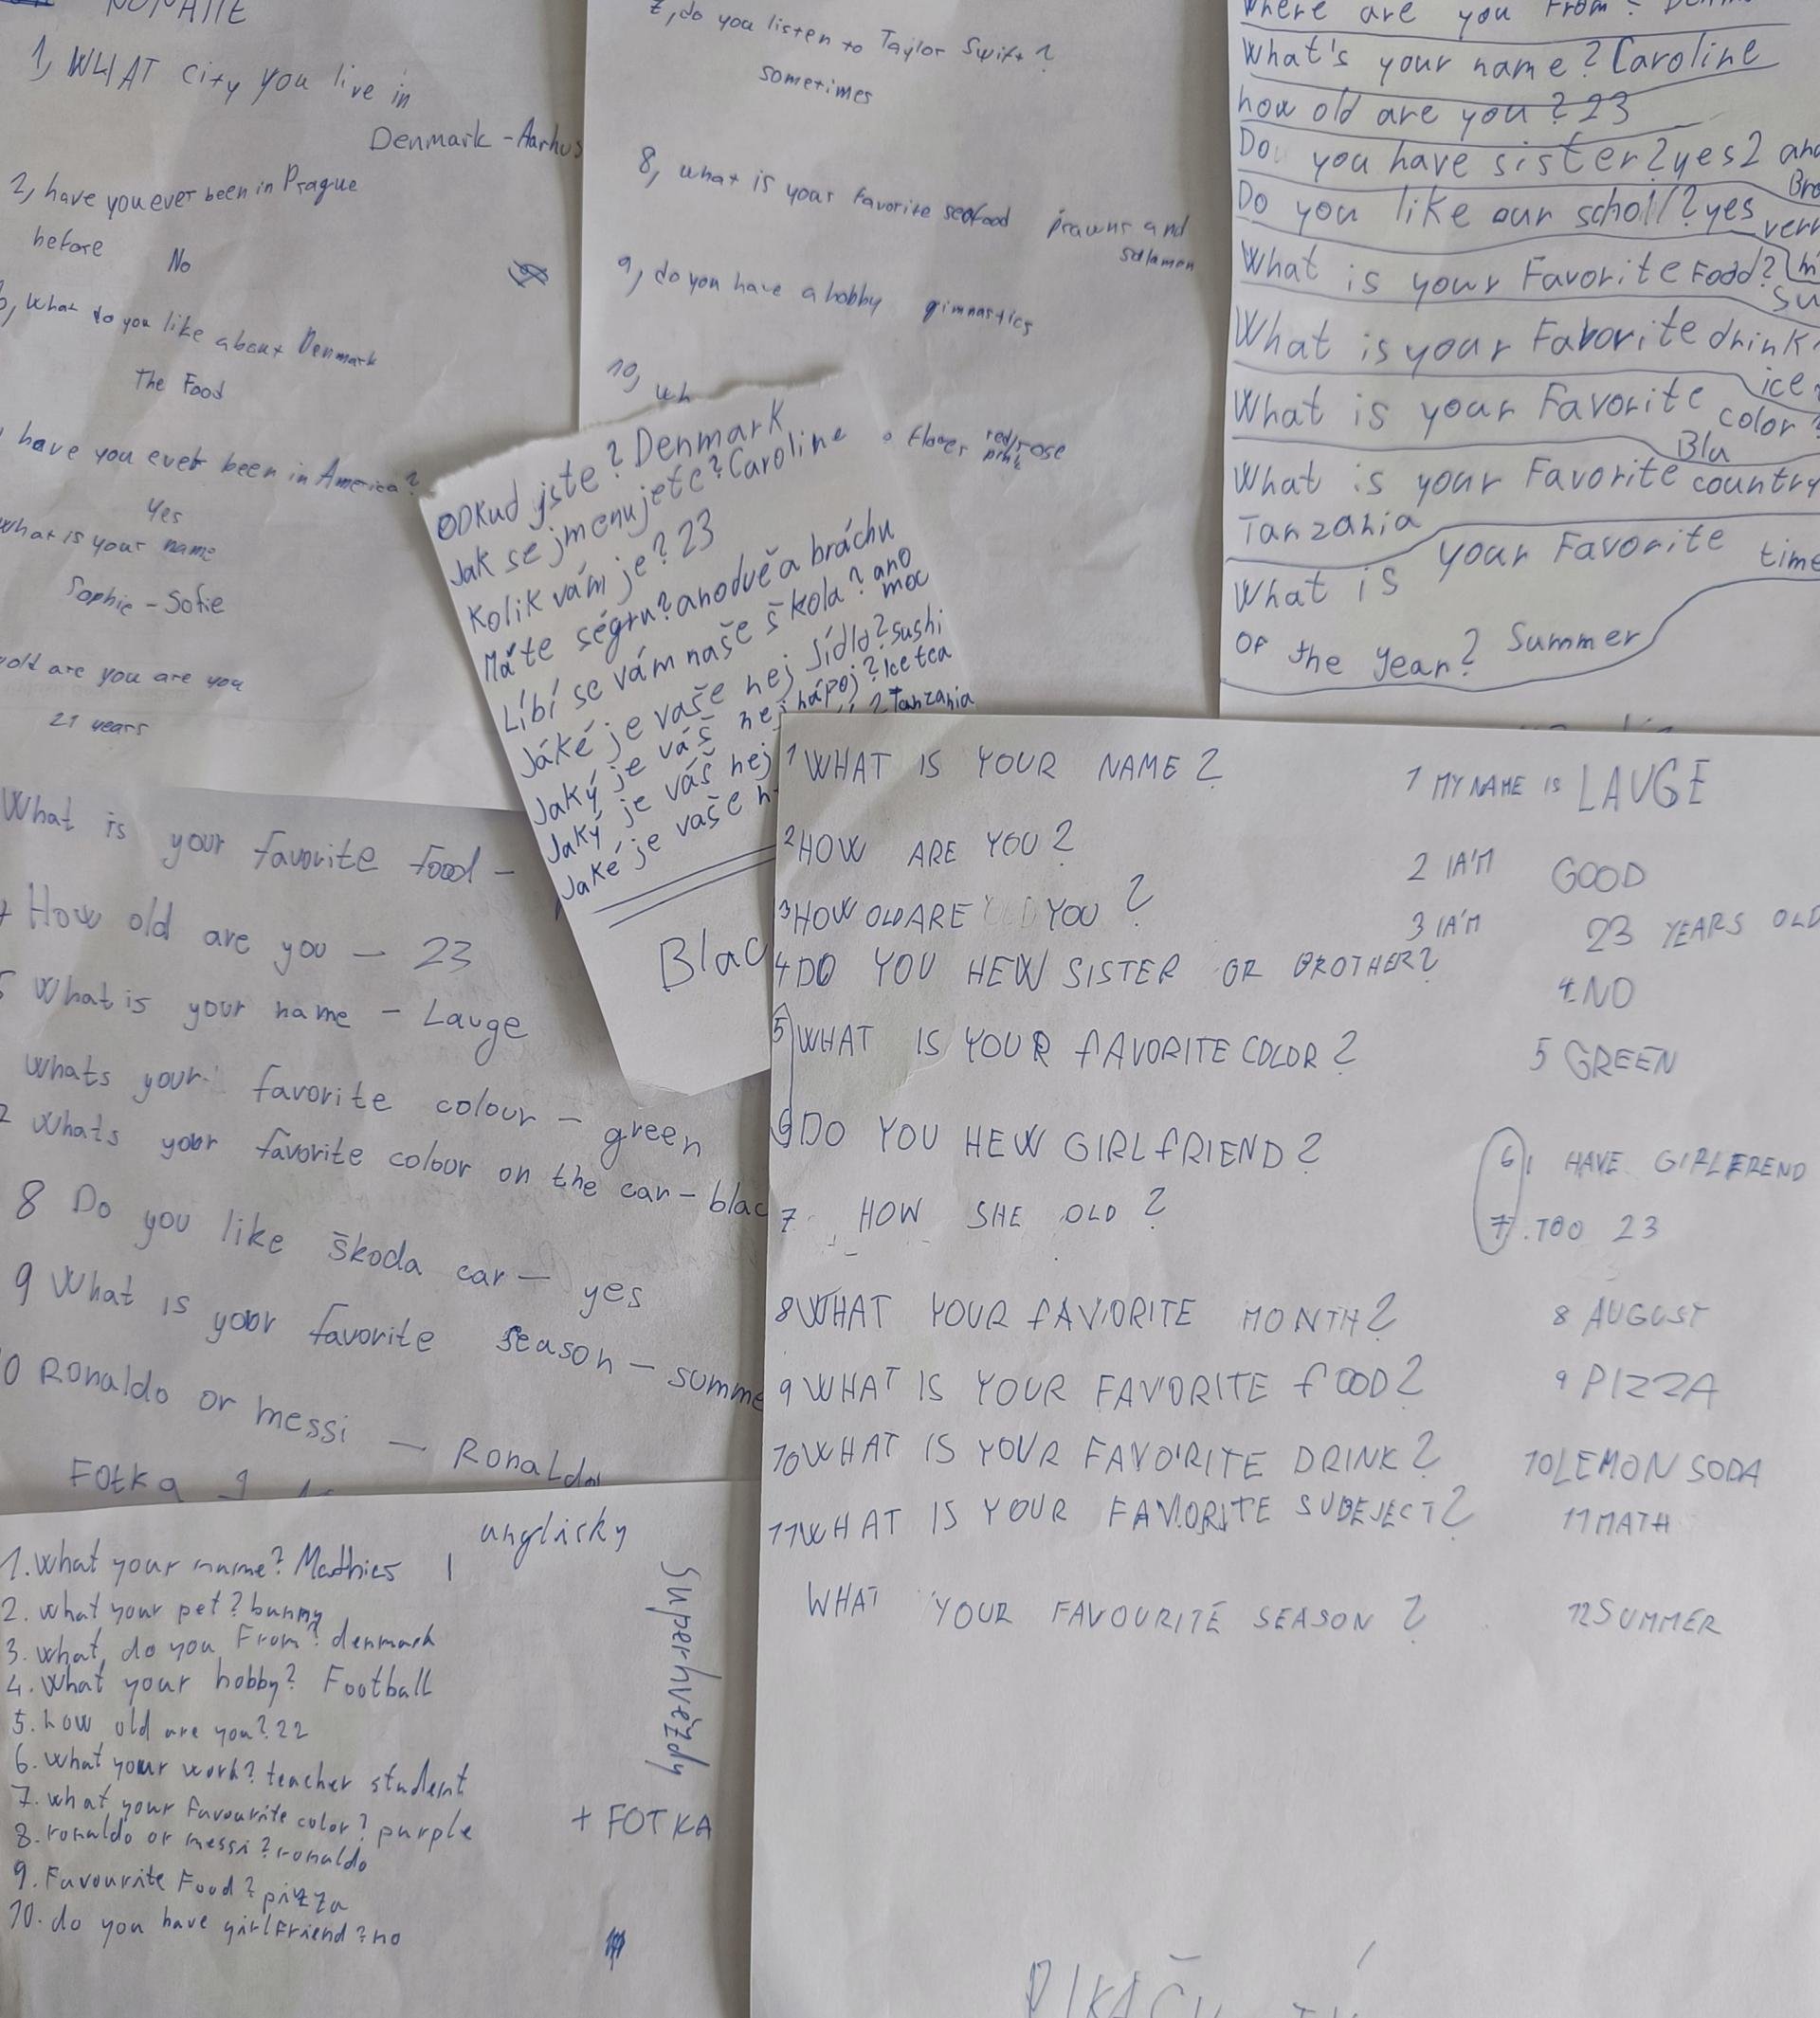 1, WHAT city you live in
Denmark - Aarhus
2, have you ever been in Prague
before No
what do you like about Denmark
The Food
have you ever been in America?
Yes
What is your name
Sophie - Sofie
old are you are you
21 years
7, do you listen to Taylor Swift?
sometimes
8, what is your favorite seafood prawns and
salamon
9, do you have a hobby gimnastics
10, wh
flower red/rose
pink
Where are you From?
What's your name? Caroline
how old are you? 23
Do you have sister? yes 2 and
Bro
Do you like our scholl? yes
verr
What is your Favorite Food?
su
What is your Favorite drink
ice
What is your Favorite color?
Bla
What is your Favorite country
Tanzania
What is your Favorite time
OF the year? Summer
ODKud jste? Denmark
Jak se jmenujete? Caroline
Kolik vám je? 23
Máte ségru? ano dvě a bráchu
Líbí se vám naše škola? ano
moc
Jáké je vaše nej jídlo? sushi
Jaký je váš nej nápoj? Ice tea
Jaký je váš nej ? Tanzania
Jaké je vaše n
Blac
What is your favorite food -
How old are you - 23
What is your name - Lauge
Whats your favorite colour - green
Whats your favorite colour on the car - blac
8 Do you like škoda car - yes
9 What is your favorite season - summe
0 Ronaldo or messi - Ronaldo
Fotka
1 WHAT IS YOUR NAME? 1 MY NAME IS LAUGE
2 HOW ARE YOU? 2 IA'M GOOD
3 HOW OLD ARE YOU? 3 IA'M 23 YEARS OLD
4 DO YOU HEW SISTER OR BROTHER? 4. NO
5 WHAT IS YOUR fAVORITE COLOR? 5 GREEN
6 DO YOU HEW GIRLfRIEND? 6 I HAVE GIRLFREND
7 HOW SHE OLD? 7. TOO 23
8 WHAT YOUR fAVIORITE MONTH? 8 AUGUST
9 WHAT IS YOUR FAVORITE fOOD? 9 PIZZA
10 WHAT IS YOUR FAVORITE DRINK? 10 LEMON SODA
11 WHAT IS YOUR FAVIORITE SUBEJECT? 11 MATH
WHAT YOUR FAVOURITE SEASON? 12 SUMMER
anglicky
1. What your name? Mathies
2. what your pet? bunny
3. what do you From? denmark
4. What your hobby? Football
5. how old are you? 22
6. What your work? teacher student
7. what your favourite color? purple
8. ronaldo or messi? ronaldo
9. Favourite Food? pizza
10. do you have girlFriend? no
Superhvězdy
+ FOTKA